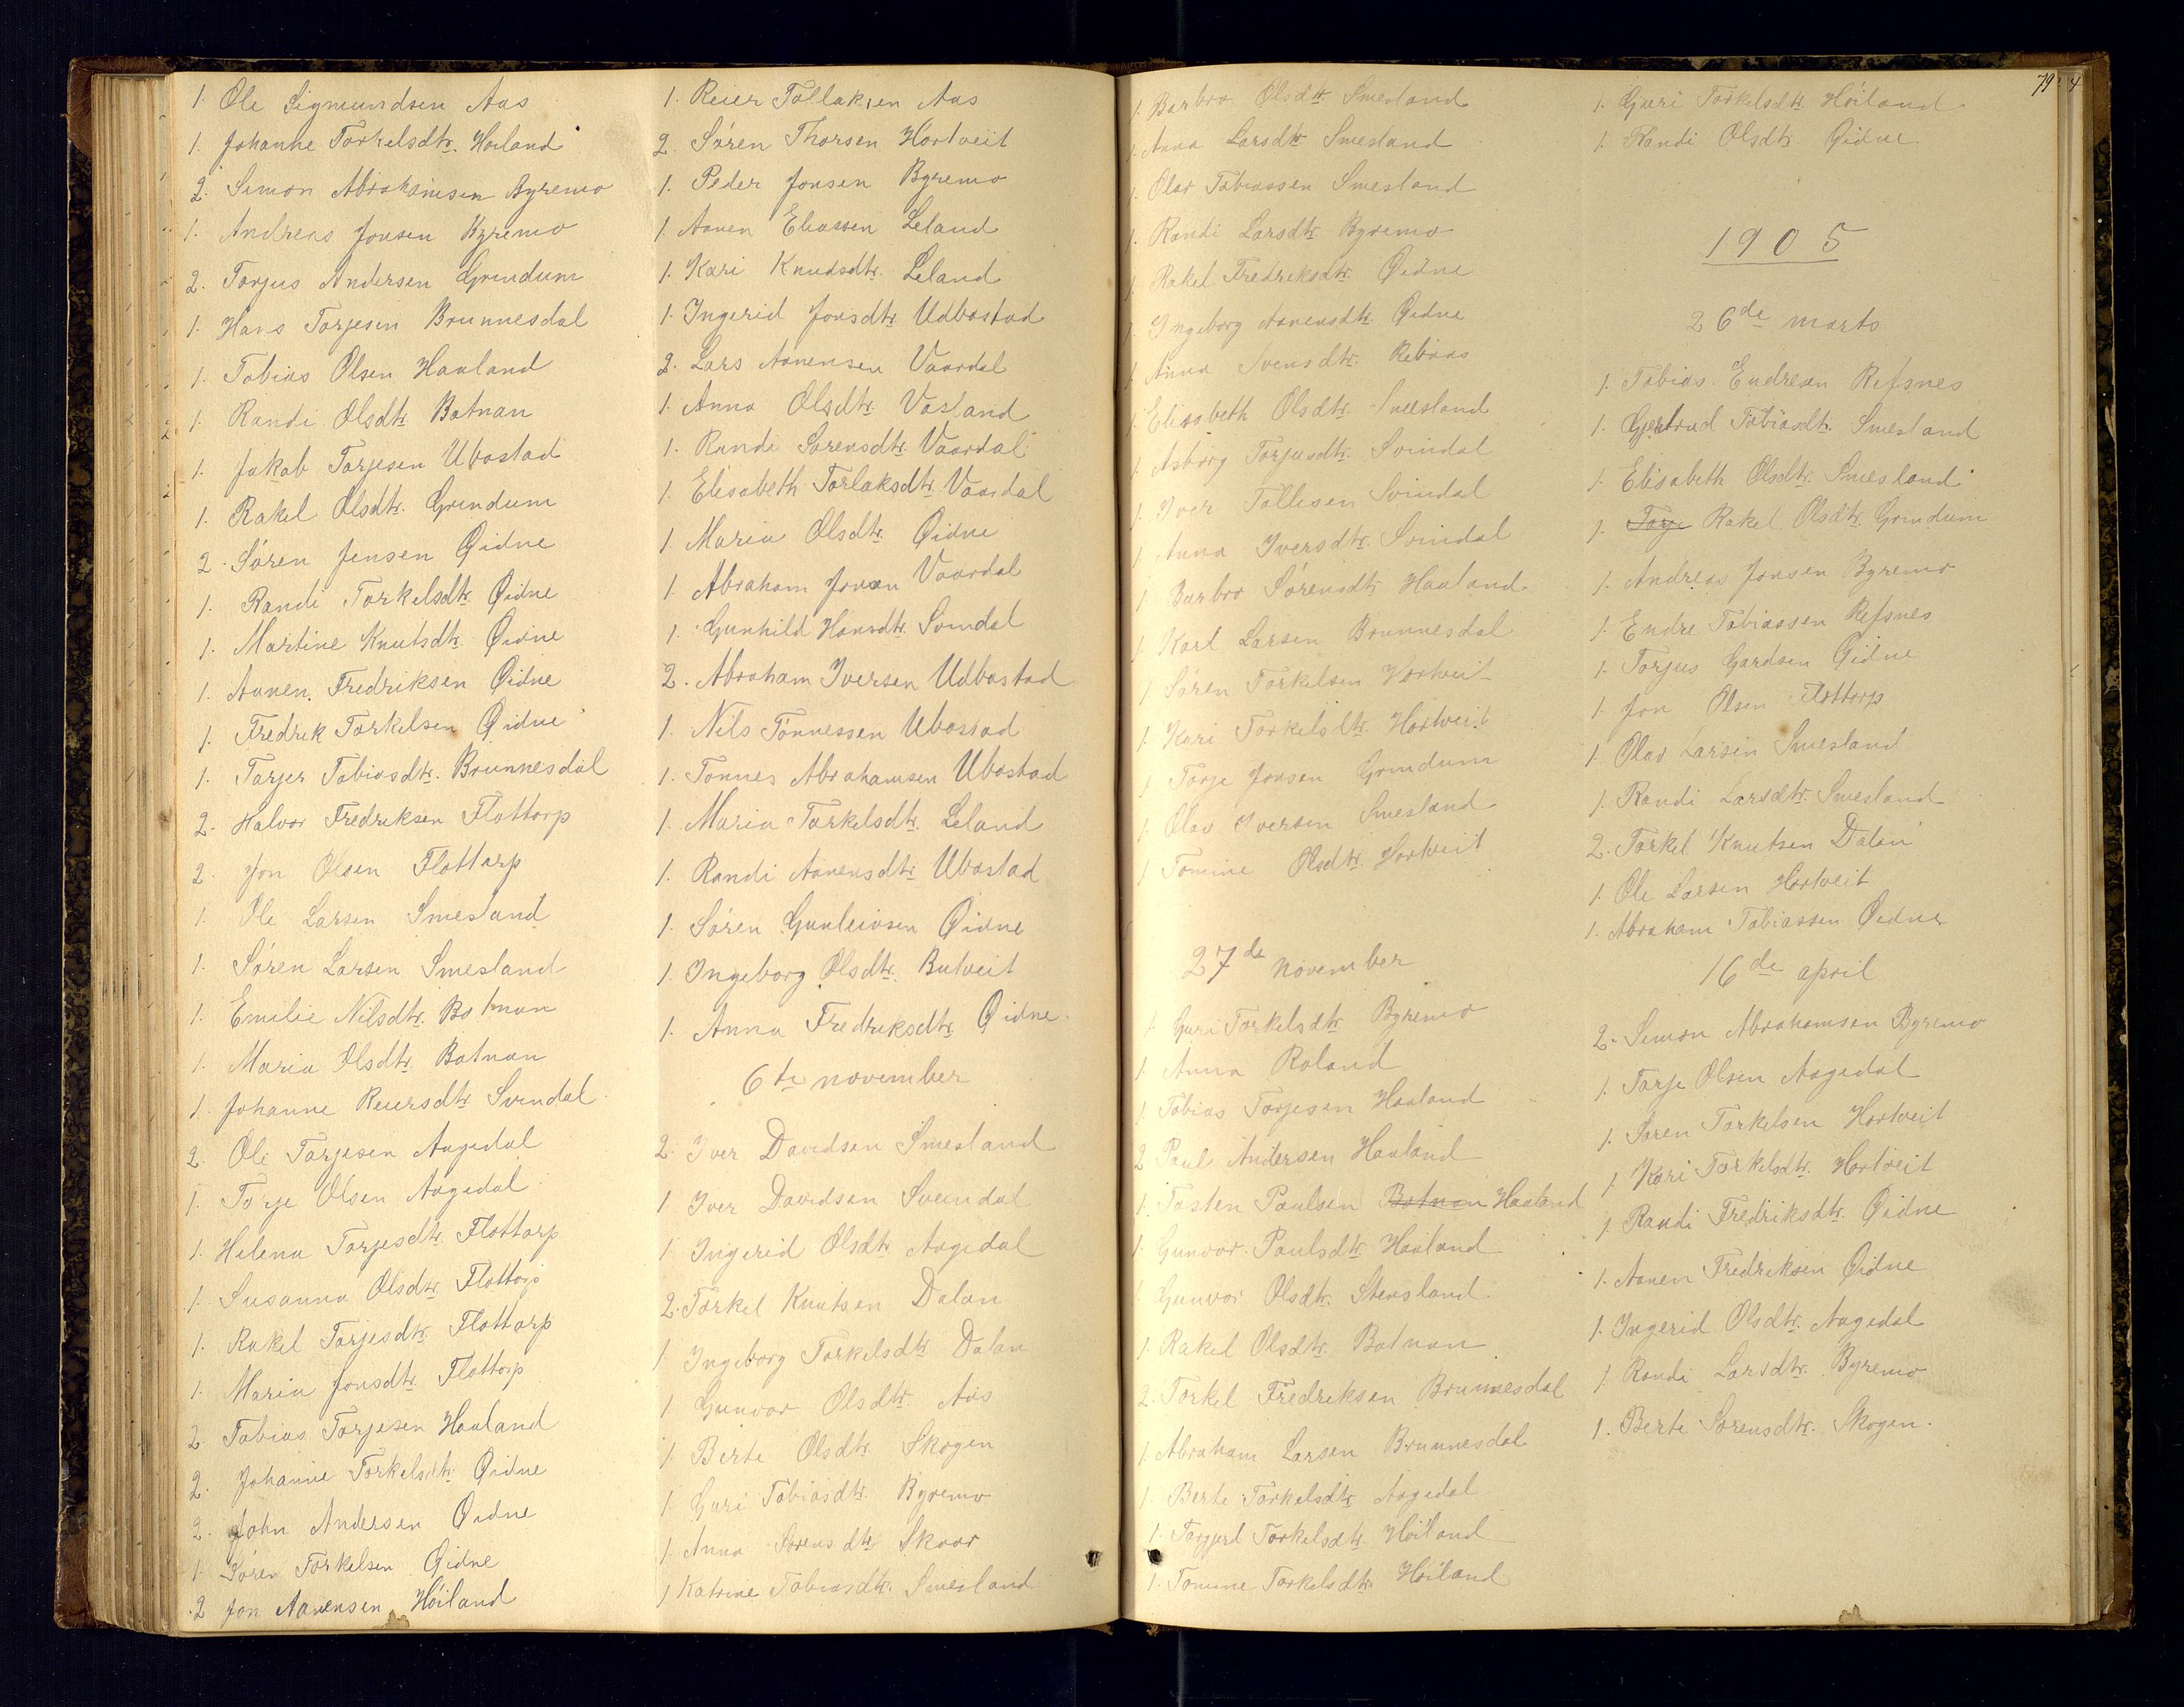 1. Ole Sigmundsen Aas
1. Johanne Torkelsdtr. Høiland
2. Simon Abrahamsen Byremo
1. Andreas Jonsen Byremo
2. Torjus Andersen Grindum
1. Hans Torjesen Brunnesdal
1. Tobias Olsen Haaland
1. Randi Olsdtr. Botnan
1. Jakob Torjesen Ubostad
1. Rakel Olsdtr. Grindum
2. Søren Jensen Øidne
1. Randi Torkelsdtr. Øidne
1. Martine Knutsdtr. Øidne
1. Aanen Fredriksen Øidne
1. Fredrik Torkelsen Øidne
1. Torjer Tobiasdtr. Brunnesdal
2. Halvor Fredriksen Flottorp
2. Jon Olsen Flottorp
1. Ole Larsen Smesland
1. Søren Larsen Smesland
1. Emilie Nilsdtr. Botnan
1. Maria Olsdtr. Botnan
1. Johanne Reiersdtr. Svindal
2. Ole Torjesen Aagedal
1. Torje Olsen Aagedal
1. Helena Torjesdtr. Flottorp
1. Susanna Olsdtr. Flottorp
1. Rakel Torjesdtr. Flottorp
1. Maria Jonsdtr. Flottorp
2. Tobias Torjesen Haaland
2. Johanne Torkelsdtr. Øidne
2. John Andersen Øidne
1. Søren Torkelsen Øidne
2 Jon Aanensen Höiland
1. Reier Tollaksen Aas
2. Søren Thorsen Hortveit
1. Peder Jonsen Byremo
1. Aanen Eliassen Leland
1. Kari Knudsdtr. Leland
1. Ingerid Jonsdtr. Udbostad
2. Lars Aanensen Vaardal
1. Anna Olsdtr. Vasland
1. Randi Sørensdtr. Vaardal
1. Elisabeth Torlaksdtr. Vaardal
1. Maria Olsdtr. Øidne
1. Abraham Jonsen Vaardal
1. Gunhild Hansdtr. Svindal
2. Abraham Iversen Udbostad
1. Nils Tönnessen Ubostad
1. Tonnes Abrahamsen Ubostad
1. Maria Torkelsdtr. Leland
1. Randi Aanensdtr. Ubostad
1. Søren Gunleivsen Øidne
1. Ingeborg Olsdtr. Butveit
1. Anna Fredriksdtr. Øidne
6te november
2. Iver Davidsen Smesland
1 Iver Davidsen Sveindal
1. Ingerid Olsdtr. Aagedal
2. Torkel Knutsen Dalan
1 Ingeborg Torkelsdtr. Dalan
1 Gunvor Olsdtr. Aas
1 Berte Olsdtr. Skogen
1 Guri Tobiasdtr. Byremo
1. Anna Sörensdtr. Skaar
1 Katrine Tobiasdtr. Smesland
1. Barbro Olsdtr. Smesland
1. Anna Larsdtr. Smesland
1. Olav Tobiassen Smesland
1. Randi Larsdtr. Byremo
1 Rakel Fredriksdtr. Øidne
1 Ingeborg Aanensdtr. Øidne
1 Anna Svensdtr.
1. Elisabeth Olsdtr. Smesland
1 Asborg Torjusdtr. Svindal
1 Iver Tollesen Svindal
1 Anna Iversdtr. Svindal
1 Barbro Sörensdtr. Haaland
1 Karl Larsen Brunnesdal
1 Søren Torkelsen Hortveit
1. Kari Torkelsdtr. Hortveit
1 Torje Jonsen Grindum
1. Olav Iversen Smesland
1 Tomine Olsdtr. Hortveit
27de november
1 Guri Torkelsdtr. Byremo
1 Anna Roland
1 Tobias Torjesen Haaland
2 Paul Andersen Haaland
1. Tosten Paulsen Botnan Haaland
1. Gunvor Paulsdtr. Haaland
1 Gunvor Olsdtr. Stensland
1. Rakel Olsdtr. Botnan
2. Torkel Fredriksen Brunnesdal
1. Abraham Larsen Brunnesdal
1. Berte Torkelsdtr. Aagedal
1. Torgjerd Torkelsdtr. Höiland
1. Tomine Torkelsdtr. Höiland
79
1. Gjeri Torkelsdtr. Höiland
1. Randi Olsdtr. Øidne
1905
26de marts
1. Tobias Endresen Refsnes
1. Gjertrud Tobiasdtr. Smesland
1. Elisabeth Olsdtr. Smesland
1. Torje Rakel Olsdtr. Grindum
1. Andreas Jonsen Byremo
1. Endre Tobiassen Refsnes
1. Torjus Gardsen Øidne
1. Jon Olsen Flottorp
1 Olav Larsen Smesland
1. Randi Larsdtr. Smesland
2. Torkel Knutsen Dalan
1. Ole Larsen Hortveit
1. Abraham Tobiassen Øidne
16de april
2. Simon Abrahamsen Byremo
1. Torje Olsen Aagedal
1. Søren Torkelsen Hortveit
1. Kari Torkelsdtr. Hortveit
1 Randi Fredriksdtr. Øidne
1. Aanen Fredriksen Øidne
1. Ingerid Olsdtr. Aagedal
1 Randi Larsdtr. Byremo
1. Berte Sorensdtr. Skogen.